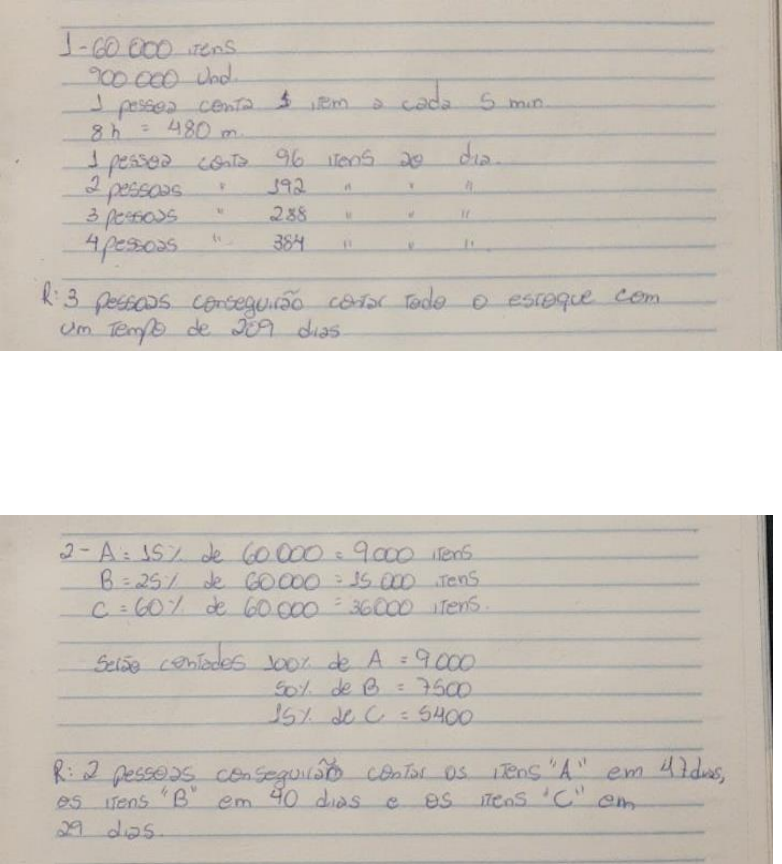 1-60.000 itens
900.000 Und.
1 pessoa conta 1 item a cada 5 min.
8h = 480 m.
1 pessoa conta 96 itens ao dia.
2 pessoas " 192 " " "
3 pessoas " 288 " " "
4 pessoas " 384 " " "
R: 3 pessoas conseguirão contar todo o estoque com
um tempo de 209 dias.
2- A = 15% de 60.000 = 9.000 itens
B = 25% de 60.000 = 15.000 itens
C = 60% de 60.000 = 36.000 itens.
Serão contados 100% de A = 9.000
50% de B = 7500
15% de C = 5400
R: 2 pessoas conseguirão contar os itens "A" em 47 dias,
os itens "B" em 40 dias e os itens "C" em
29 dias.